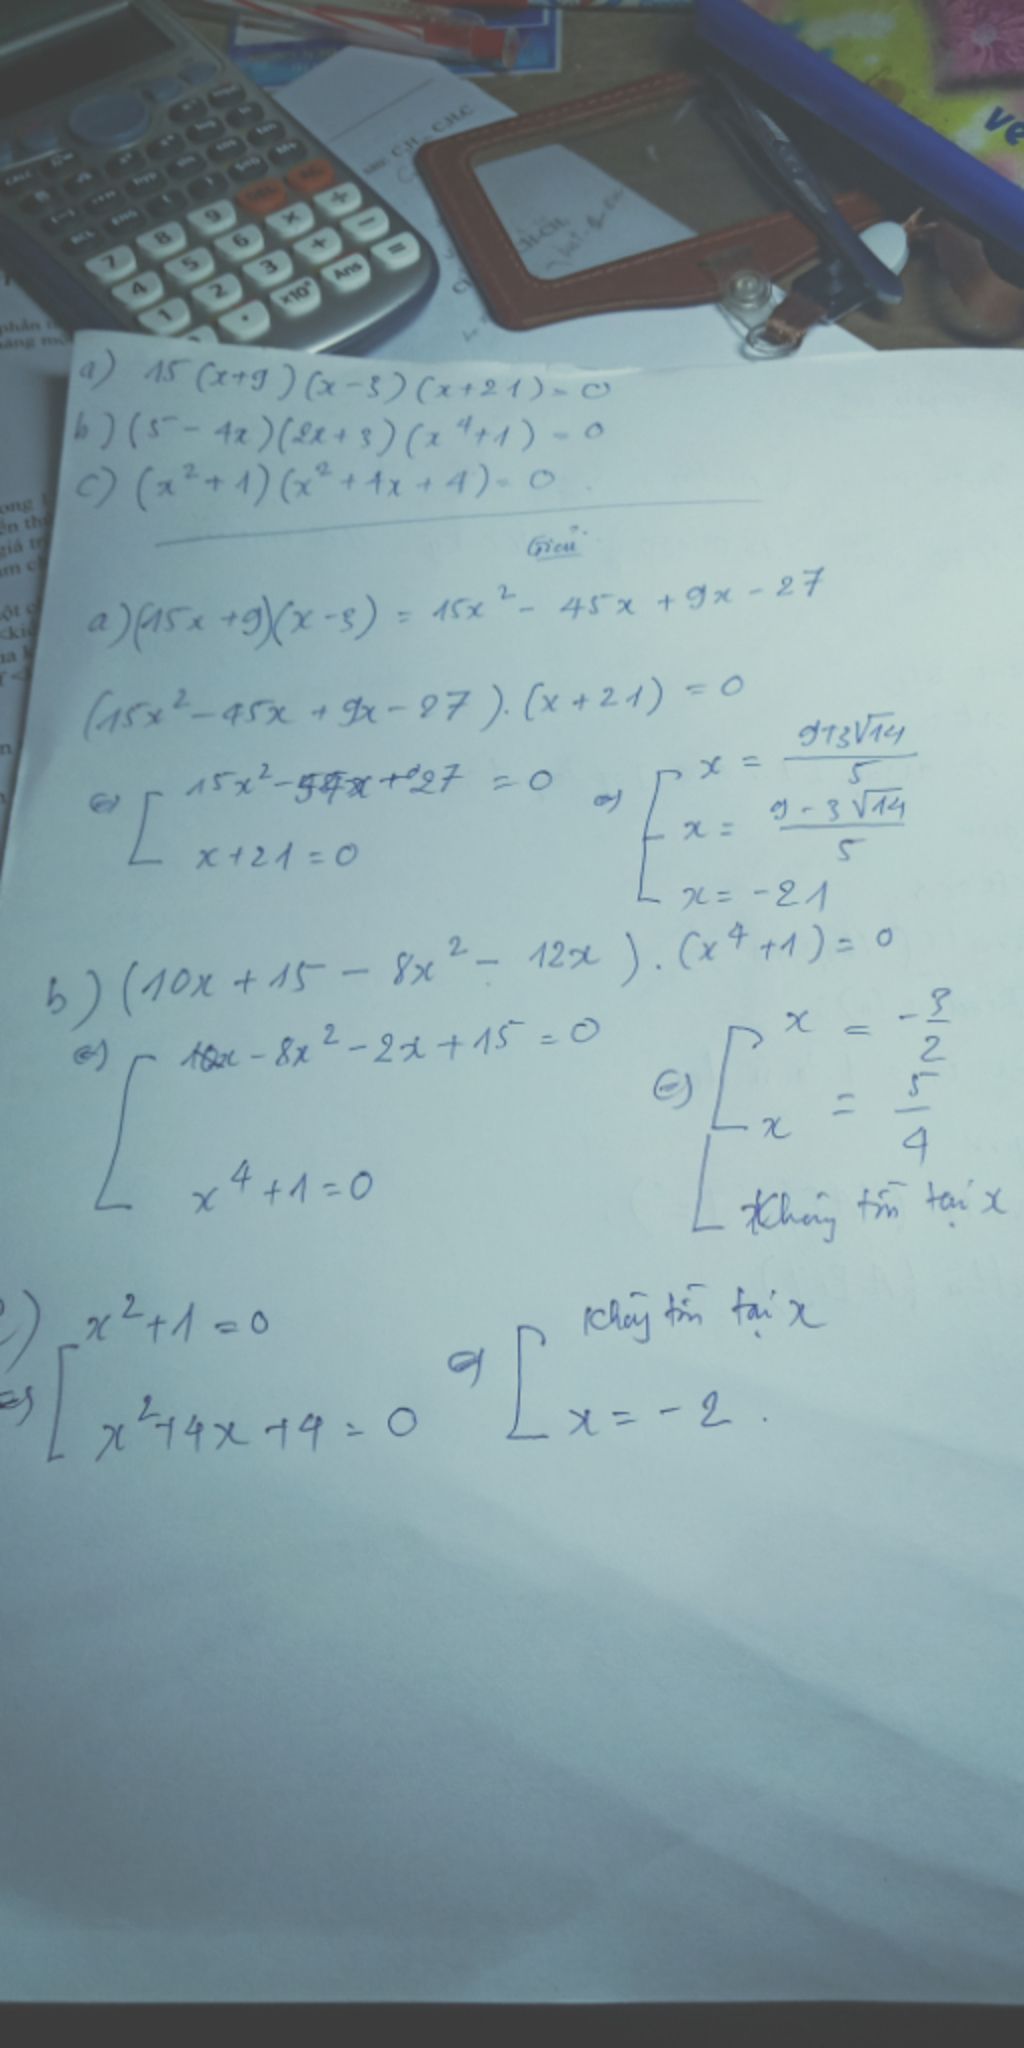 CALC
7 8 9 DEL AC
4 5 6 × ÷
1 2 3 + −
. ×10ˣ Ans =
ve
a) 15 (x+9) (x-3) (x+21) = 0
b) (5 - 4x) (2x+3) (x⁴+1) = 0
c) (x²+1) (x²+4x+4) = 0
Giải
a) (15x+9)(x-3) = 15x² - 45x + 9x - 27
(15x² - 45x + 9x - 27). (x+21) = 0
15x² - 54x + 27 = 0
x+21 = 0
x = 9+3√14 / 5
x = 9-3√14 / 5
x = -21
b) (10x + 15 - 8x² - 12x). (x⁴+1) = 0
- 8x² - 2x + 15 = 0
x⁴+1 = 0
x = -3/2
x = 5/4
Không tồn tại x
c) x²+1 = 0
x²+4x+4 = 0
Không tồn tại x
x = -2.